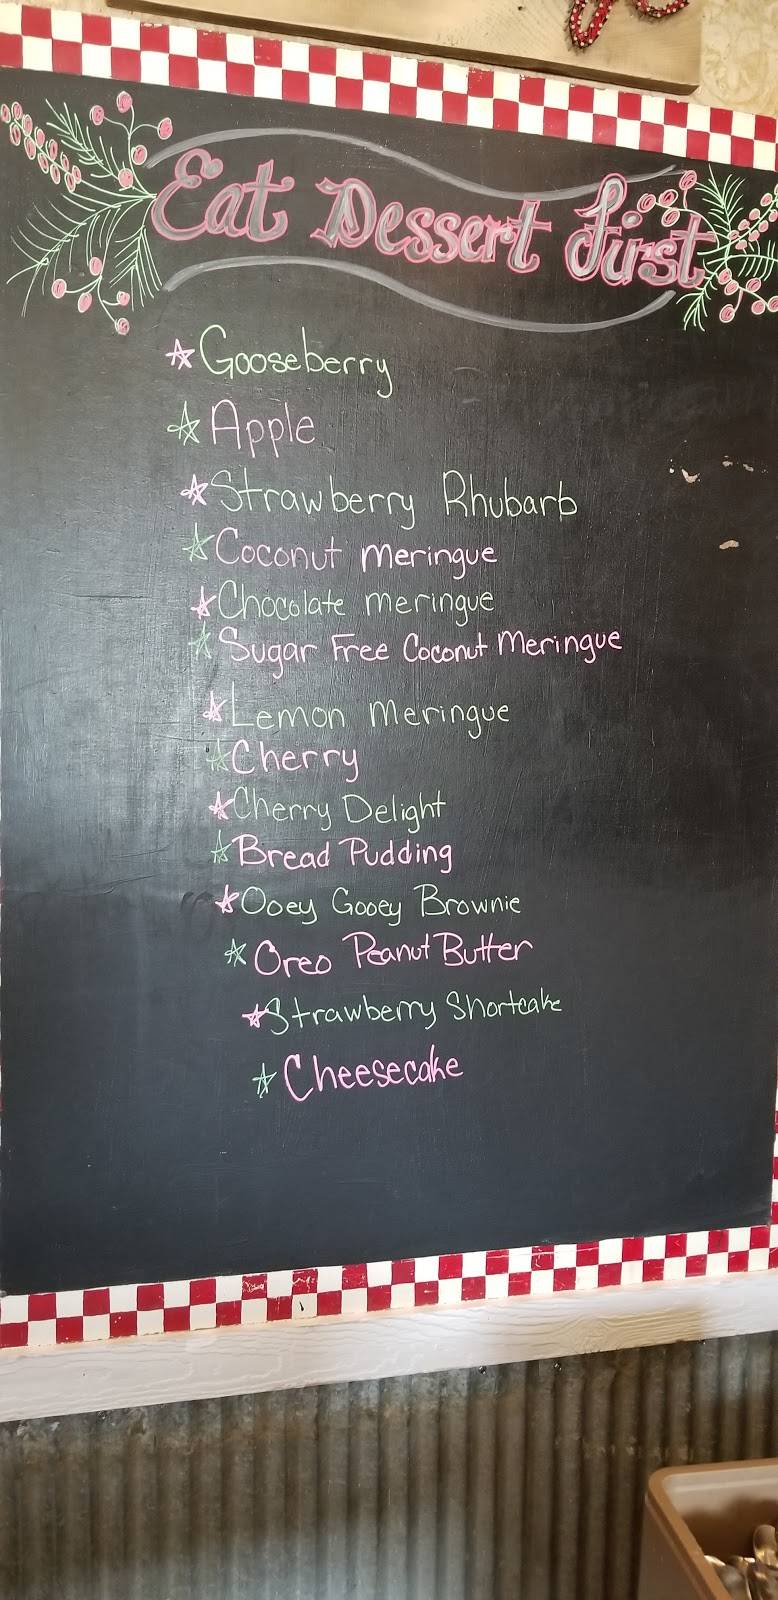 Eat Dessert First
Gooseberry
Apple
Strawberry Rhubarb
Coconut Meringue
Chocolate Meringue
Sugar Free Coconut Meringue
Lemon Meringue
Cherry
Cherry Delight
Bread Pudding
Ooey Gooey Brownie
Oreo Peanut Butter
Strawberry Shortcake
Cheesecake